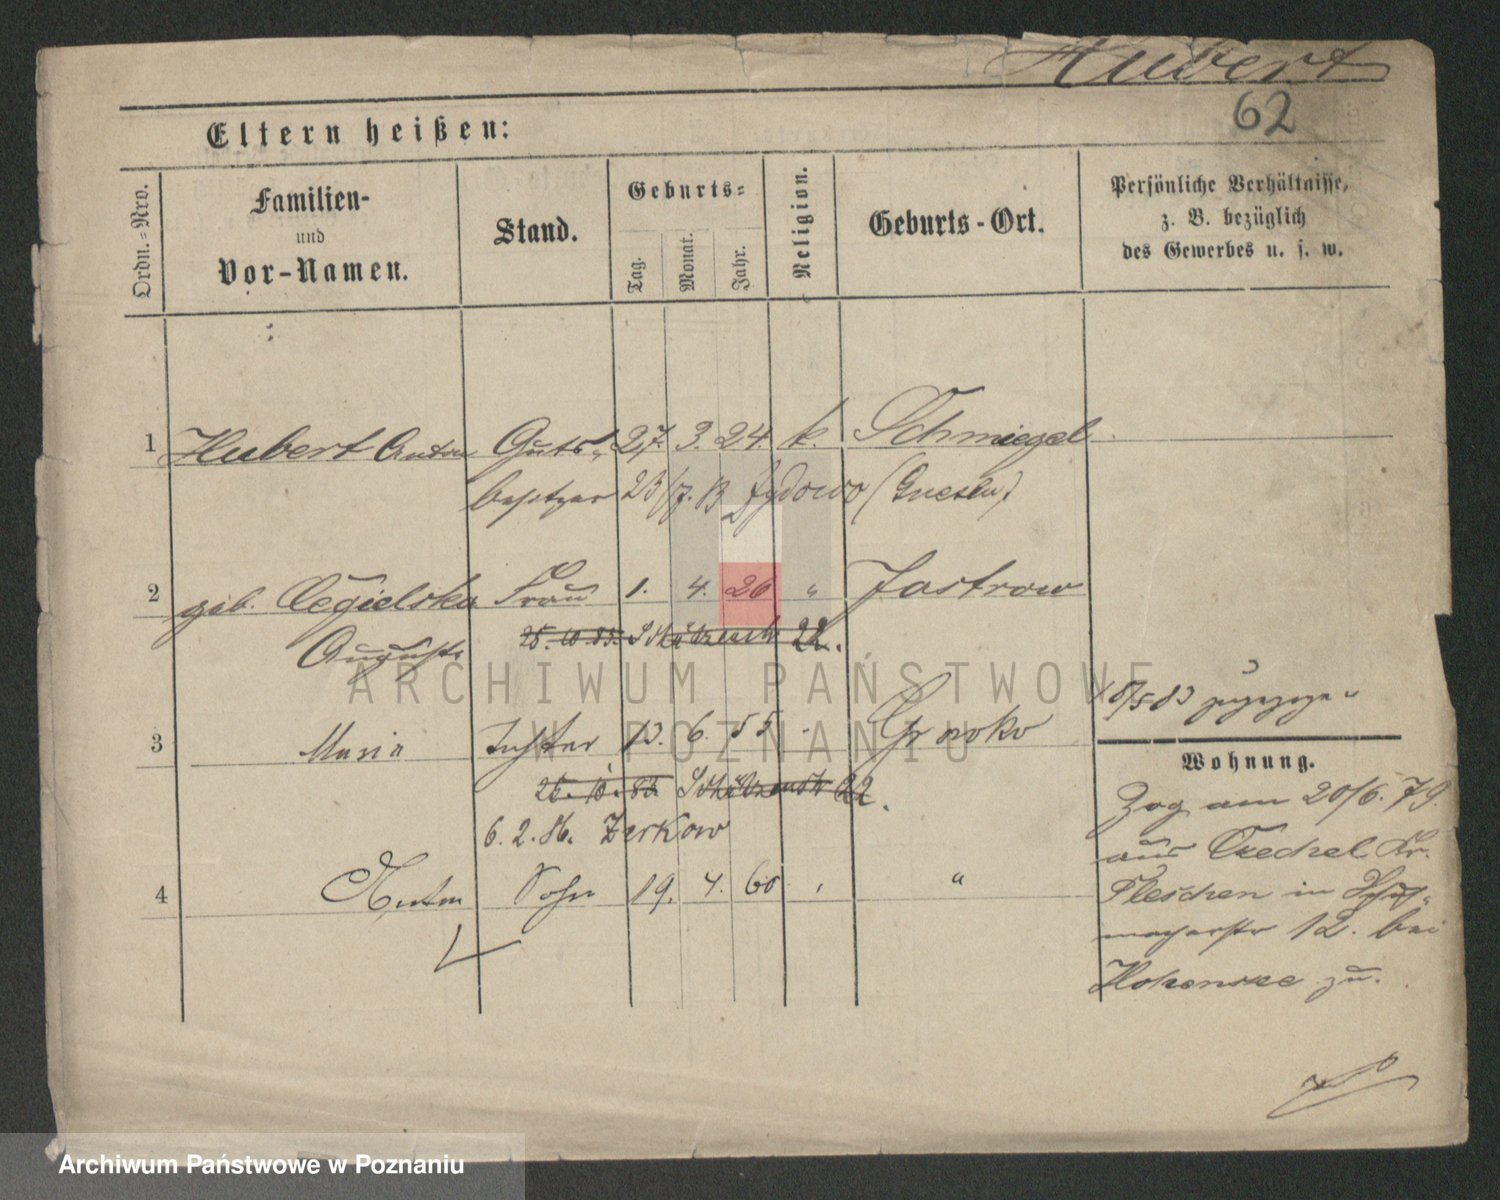 Hubert
62
Eltern heißen:
Ordn.-Nro.
Familien-
und
Vor-Namen.
Stand.
Geburts-
Tag.
Monat.
Jahr.
Religion.
Geburts-Ort.
Persönliche Verhältnisse,
z. B. bezüglich
des Gewerbes u. s. w.
1 Hubert Anton Guts- 27. 3. 24. k. Schmiegel
besitzer 23/7. Zydowo (Gnesen)
2 geb. Cegielska Frau 1. 4. 26 " Jastrow
Auguste 25. 10. 83. Schützenstr 22.
3 Maria Tochter 13. 6. 55
25. 10. 83. Schützenstr 22.
6. 2. 86. Zerkow
4 Anton Sohn 19. 4. 60 "
18/5 83 zugezogen
Wohnung.
Zog am 20/6. 79
aus Czechel Kr.
Pleschen in
12. bei
Hohensee zu.
ARCHIWUM PAŃSTWOWE
W POZNANIU
Archiwum Państwowe w Poznaniu